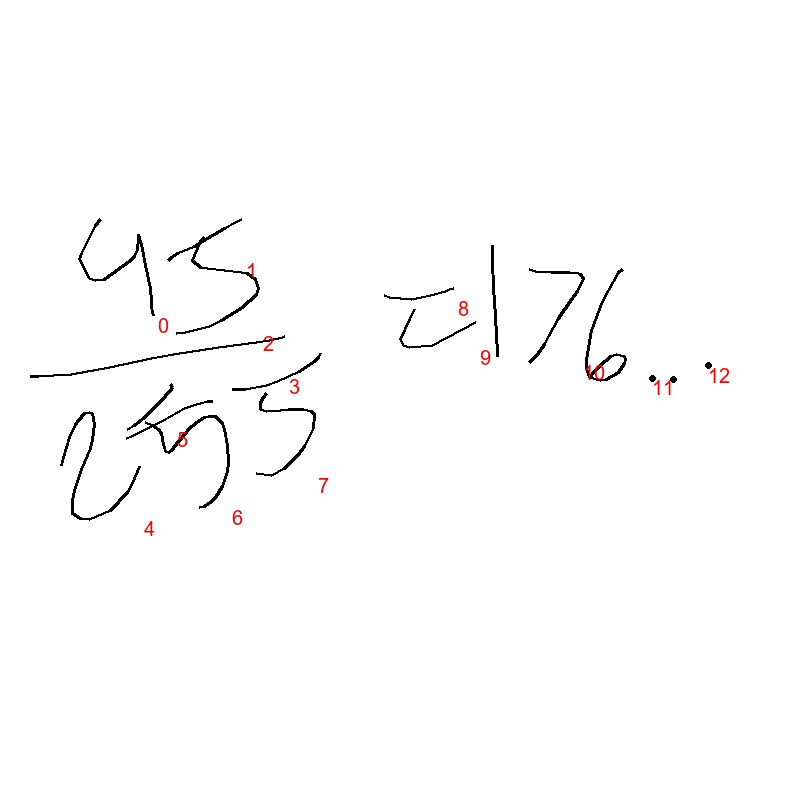 45
255
=176...
0
1
2
3
4
5
6
7
8
9
10
11
12